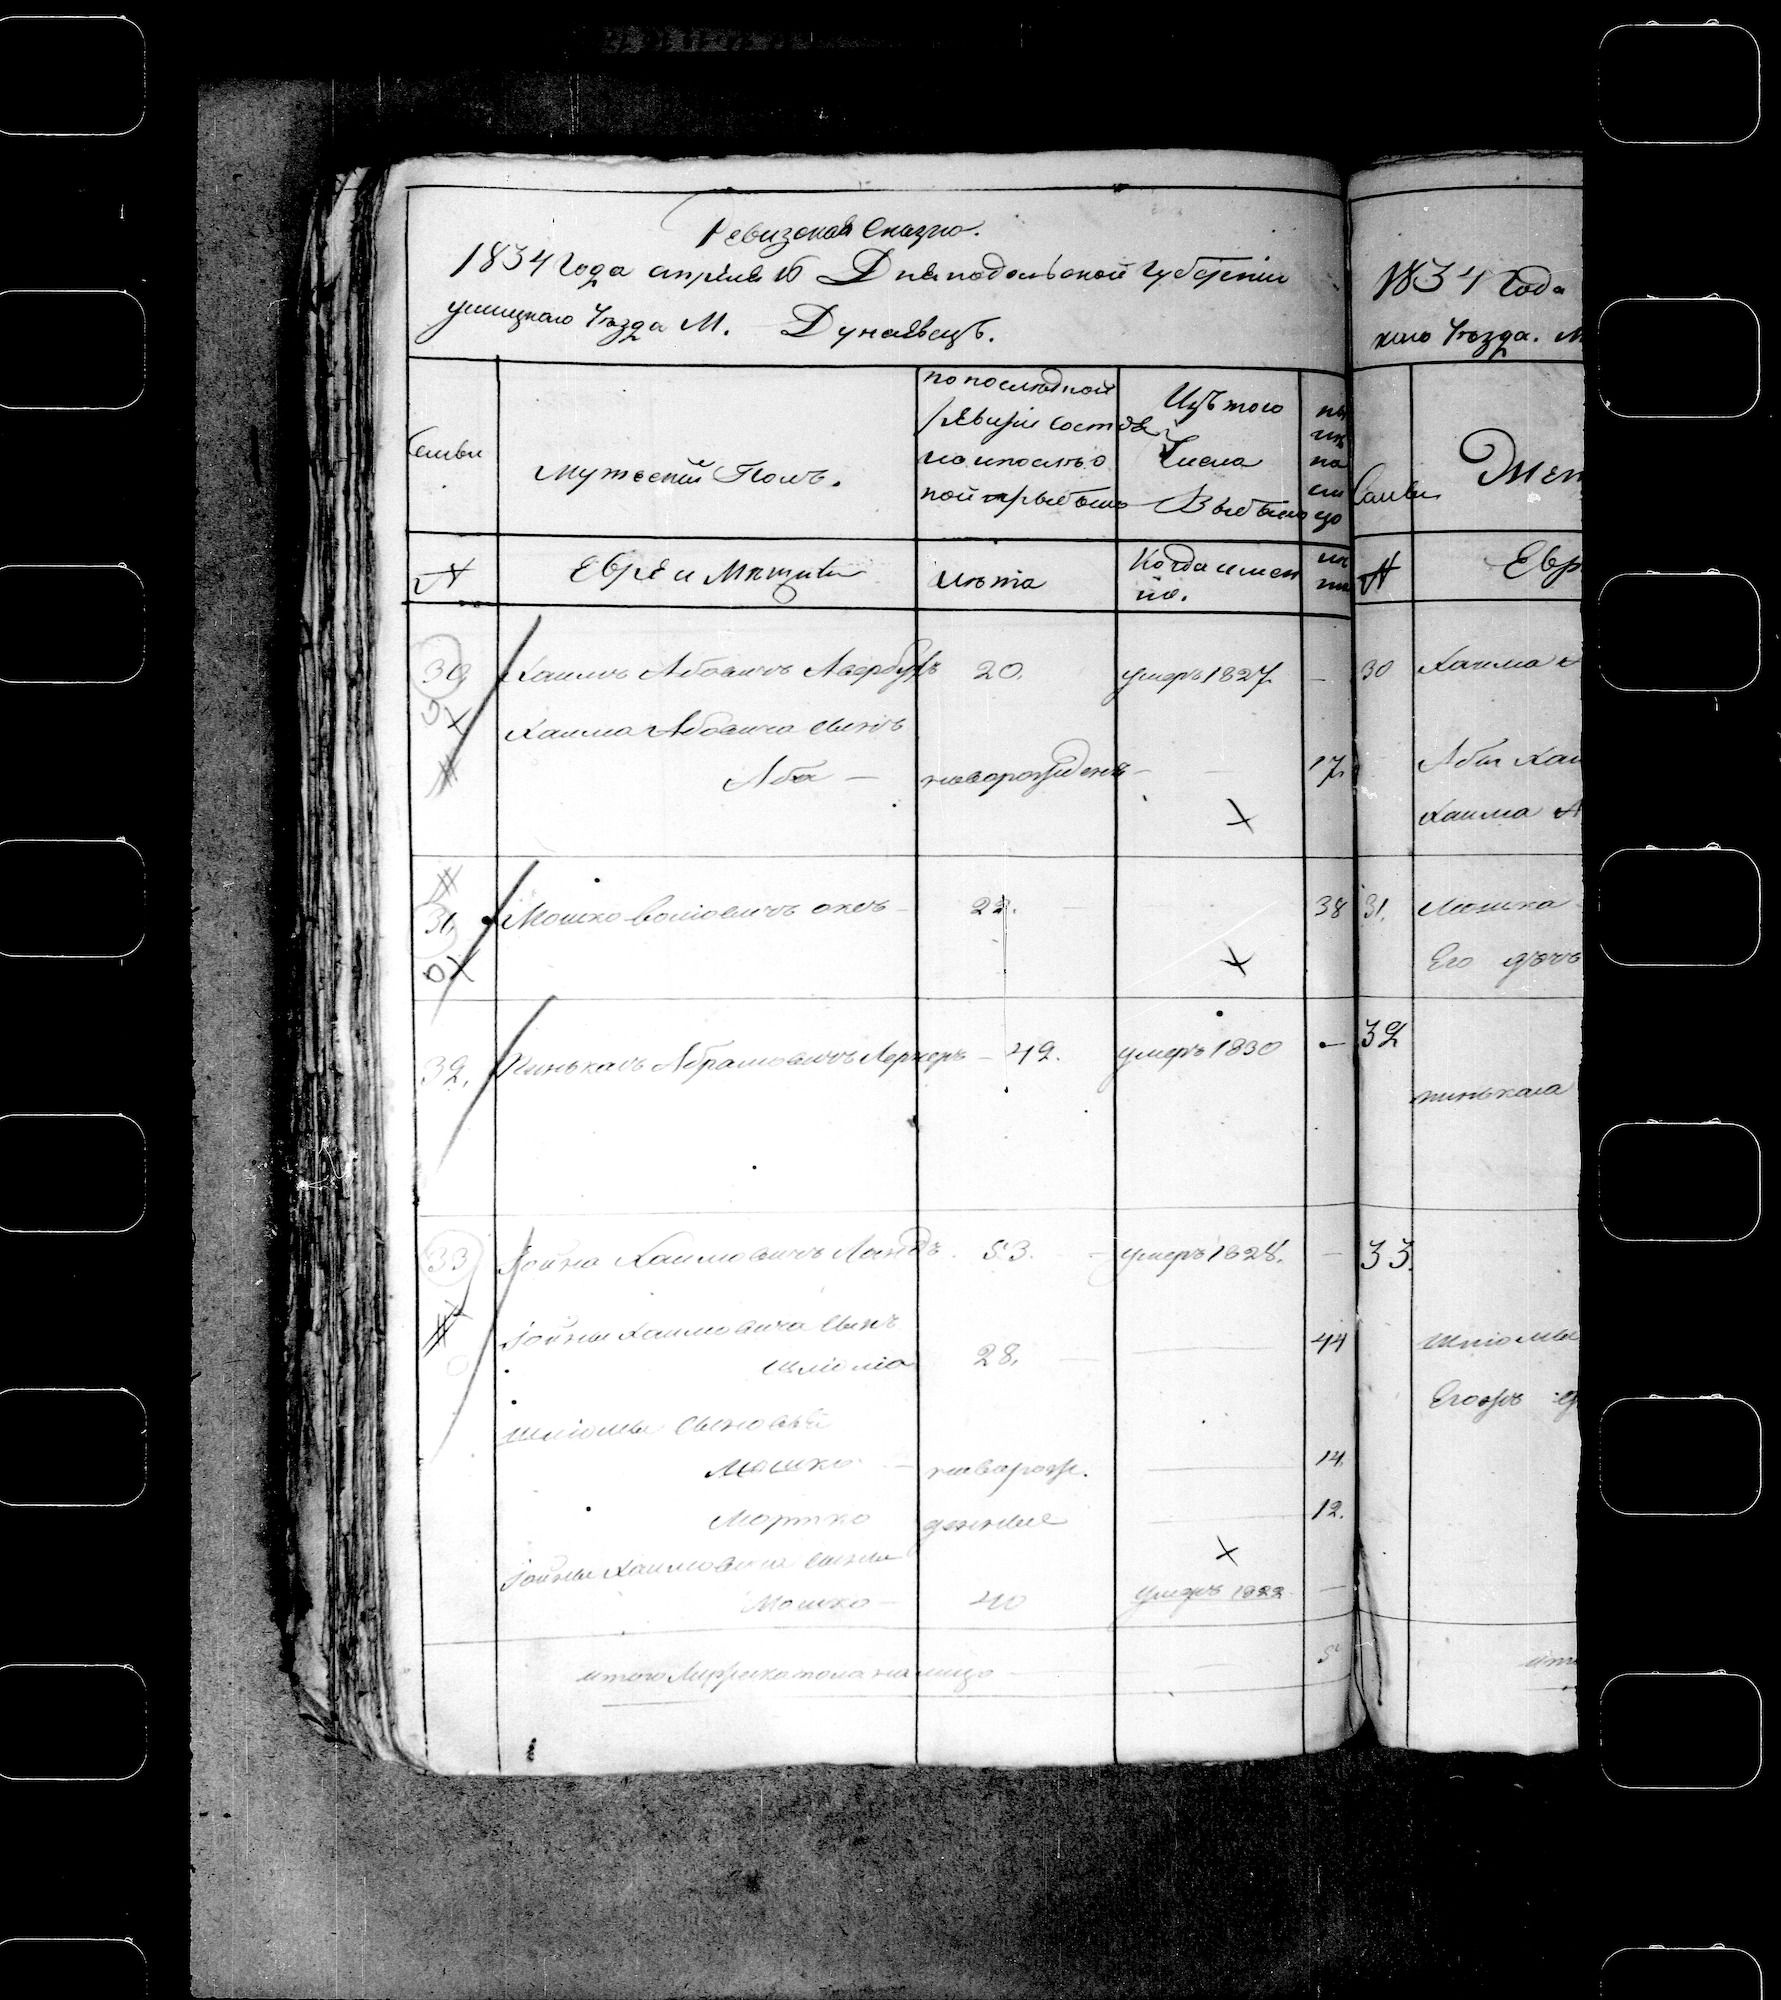 Ревизская Сказка.
1834 Года апреля 16 Дня подольской губернии
ушицкаго Уѣзда М. Дунаевецъ.
Семьи
Мужескій Полъ.
по послѣдной
ревизіи состоя
ло и послѣ о
ной прибыло
Изъ того
Числа
Выбыло
ны
нѣ
на
ли
цо
№
Евреи Мѣщане
лѣта
Когда имен
но.
лѣ
та
30 Хаимъ Абовичъ Авербухъ 20. умеръ 1827 —
Хаима Абовича сынъ
Аба — новорожденъ — — 17
31, Мошко Волiовичъ 22. 38
32, Пинькасъ Абрамовичъ Лернеръ — 49. умеръ 1830 —
33 Іойна Хаимовичъ Ландъ. 53. — умеръ 1828. —
Іойны Хаимовича сынъ
Шліома 28, — 44
Шліомы сыновья
Мошко — новорож. 14.
Мортко денные 12.
Іойны Хаимовича сынъ
Мошко — 40 умеръ 1822 —
итого пола налицо — 5
1834 Года
каго Уѣзда. М
Семьи
Жен
№
Евр
30 Хаима А
Абы Хаи
Хаима А
31, Мошка
Его дочь
32
пинькаса
33.
Шліомы
Его
ито